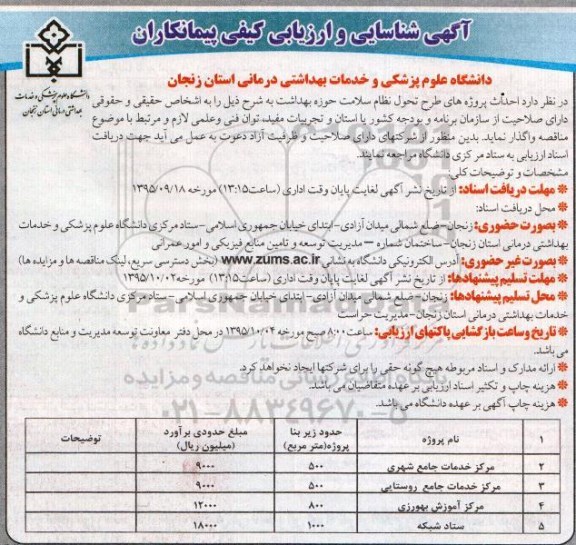 آگهی شناسایی و ارزیابی کیفی پیمانکاران
دانشگاه علوم پزشکی و خدمات
بهداشتی درمانی استان زنجان
دانشگاه علوم پزشکی و خدمات بهداشتی درمانی استان زنجان
در نظر دارد احداث پروژه های طرح تحول نظام سلامت حوزه بهداشت به شرح ذیل را به اشخاص حقیقی و حقوقی
دارای صلاحیت از سازمان برنامه و بودجه کشور یا استان و تجربیات مفید، توان فنی وعلمی لازم و مرتبط با موضوع
مناقصه واگذار نماید. بدین منظور از شرکتهای دارای صلاحیت و ظرفیت آزاد دعوت به عمل می آید جهت دریافت
اسناد ارزیابی به ستاد مرکزی دانشگاه مراجعه نمایند.
مشخصات و توضیحات کلی:
* مهلت دریافت اسناد: از تاریخ نشر آگهی لغایت پایان وقت اداری (ساعت۱۳:۱۵) مورخه ۱۳۹۵/۰۹/۱۸
* محل دریافت اسناد:
* بصورت حضوری: زنجان-ضلع شمالی میدان آزادی-ابتدای خیابان جمهوری اسلامی-ستاد مرکزی دانشگاه علوم پزشکی و خدمات
بهداشتی درمانی استان زنجان-ساختمان شماره – مدیریت توسعه و تامین منابع فیزیکی و امور عمرانی
* بصورت غیر حضوری: آدرس الکترونیکی دانشگاه به نشانی www.zums.ac.ir (بخش دسترسی سریع، لینک مناقصه ها و مزایده ها)
* مهلت تسلیم پیشنهادها: از تاریخ نشر آگهی لغایت پایان وقت اداری (ساعت۱۳:۱۵) مورخه۱۳۹۵/۱۰/۰۲
* محل تسلیم پیشنهادها: زنجان-ضلع شمالی میدان آزادی-ابتدای خیابان جمهوری اسلامی-ستاد مرکزی دانشگاه علوم پزشکی و
خدمات بهداشتی درمانی استان زنجان-مدیریت حراست
* تاریخ وساعت بازگشایی پاکتهای ارزیابی: ساعت۸:۰۰ صبح مورخه ۱۳۹۵/۱۰/۰۴ در محل دفتر معاونت توسعه مدیریت و منابع دانشگاه
می باشد.
* ارائه مدارک و اسناد مربوطه هیچ گونه حقی را برای شرکتها ایجاد نخواهد کرد.
* هزینه چاپ و تکثیر اسناد ارزیابی بر عهده متقاضیان می باشد.
* هزینه چاپ آگهی بر عهده دانشگاه می باشد.
ParsNamad
۰۲۱-۸۸۳۴۹۶۷۰-۵
۱ نام پروژه حدود زیر بنا پروژه(متر مربع) مبلغ حدودی برآورد (میلیون ریال) توضیحات
۲ مرکز خدمات جامع شهری ۵۰۰ ۹۰۰۰
۳ مرکز خدمات جامع روستایی ۵۰۰ ۹۰۰۰
۴ مرکز آموزش بهورزی ۸۰۰ ۱۲۰۰۰
۵ ستاد شبکه ۱۰۰۰ ۱۸۰۰۰